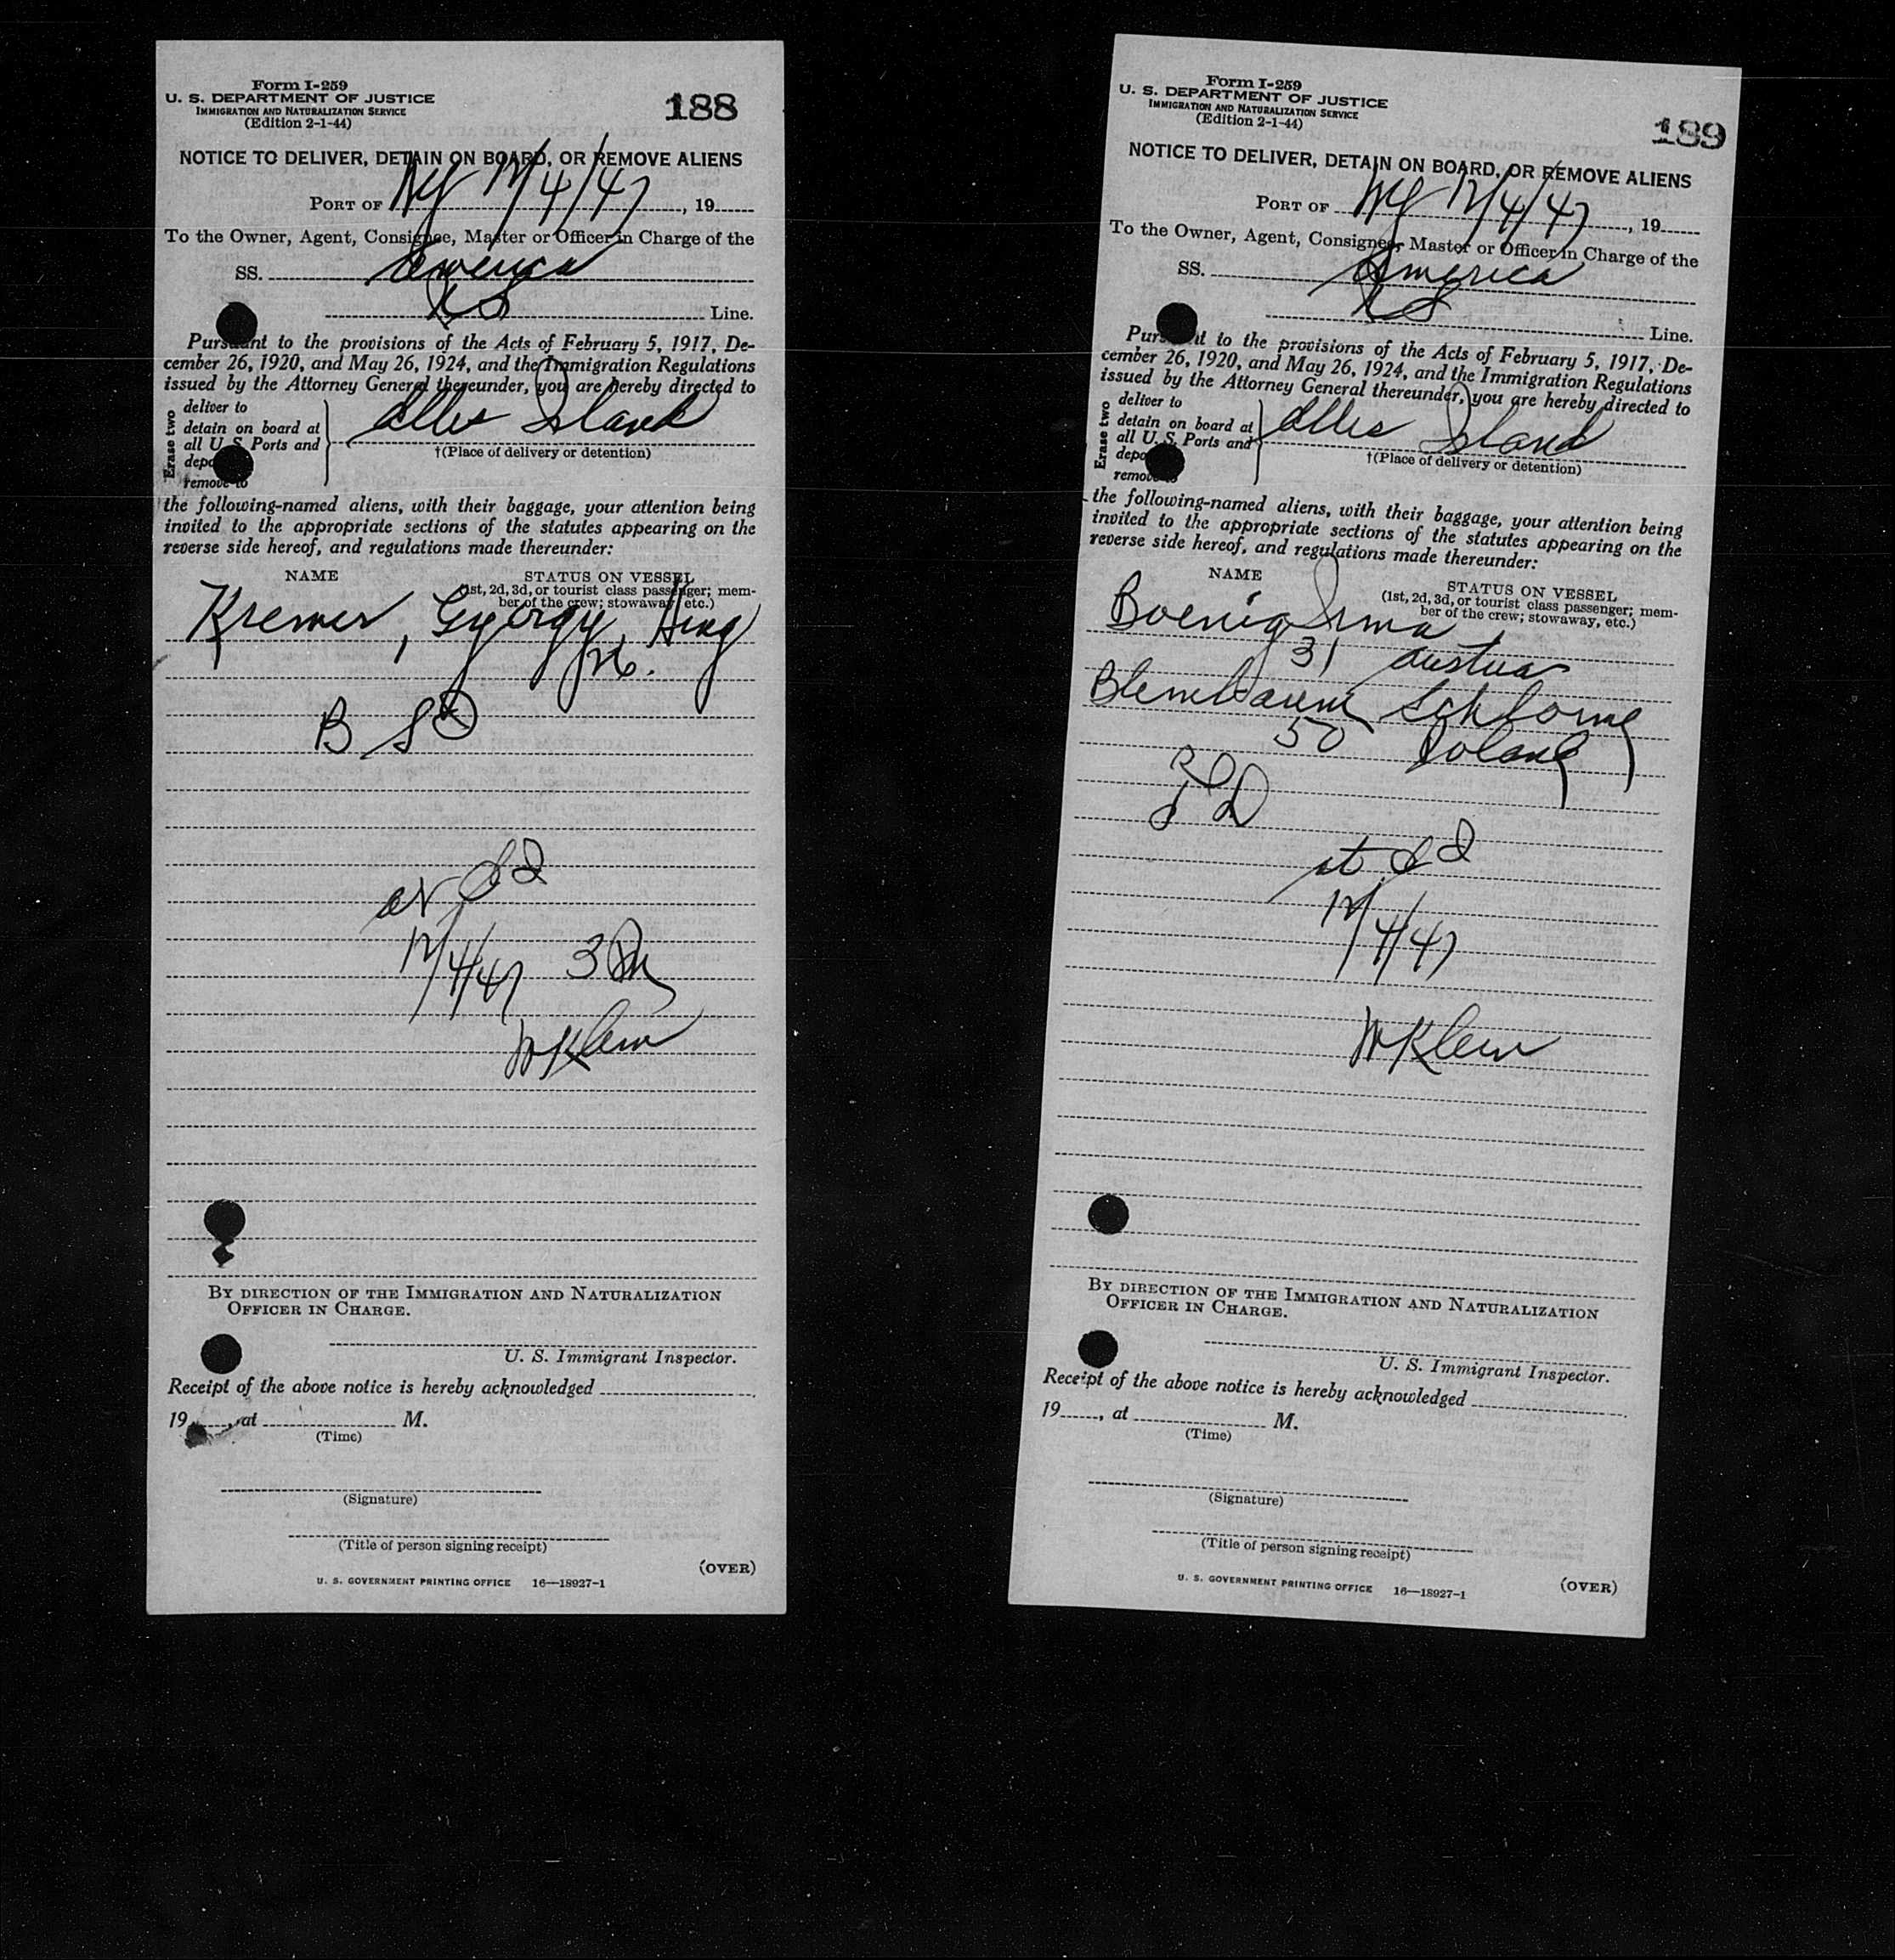 Form I-259
U. S. DEPARTMENT OF JUSTICE
IMMIGRATION AND NATURALIZATION SERVICE
(Edition 2-1-44)
188
NOTICE TO DELIVER, DETAIN ON BOARD, OR REMOVE ALIENS
PORT OF NY 12/4/47, 19
To the Owner, Agent, Consignee, Master or Officer in Charge of the
SS. America
US Line.
Pursuant to the provisions of the Acts of February 5, 1917, De-
cember 26, 1920, and May 26, 1924, and the Immigration Regulations
issued by the Attorney General thereunder, you are hereby directed to
Erase two
deliver to
detain on board at
all U. S. Ports and
depo
remove to
Ellis Island
†(Place of delivery or detention)
the following-named aliens, with their baggage, your attention being
invited to the appropriate sections of the statutes appearing on the
reverse side hereof, and regulations made thereunder:
NAME STATUS ON VESSEL
(1st, 2d, 3d, or tourist class passenger; mem-
ber of the crew; stowaway, etc.)
Kremer, Gyorgy, Hung
26.
B
12/4/47 3
W Klein
BY DIRECTION OF THE IMMIGRATION AND NATURALIZATION
OFFICER IN CHARGE.
U. S. Immigrant Inspector.
Receipt of the above notice is hereby acknowledged
19 , at M.
(Time)
(Signature)
(Title of person signing receipt)
(OVER)
U. S. GOVERNMENT PRINTING OFFICE 16—18927-1
Form I-259
U. S. DEPARTMENT OF JUSTICE
IMMIGRATION AND NATURALIZATION SERVICE
(Edition 2-1-44)
189
NOTICE TO DELIVER, DETAIN ON BOARD, OR REMOVE ALIENS
PORT OF NY 12/4/47, 19
To the Owner, Agent, Consignee, Master or Officer in Charge of the
SS. America
US Line.
Pursuant to the provisions of the Acts of February 5, 1917, De-
cember 26, 1920, and May 26, 1924, and the Immigration Regulations
issued by the Attorney General thereunder, you are hereby directed to
Erase two
deliver to
detain on board at
all U. S. Ports and
depo
remove to
Ellis Island
†(Place of delivery or detention)
the following-named aliens, with their baggage, your attention being
invited to the appropriate sections of the statutes appearing on the
reverse side hereof, and regulations made thereunder:
NAME STATUS ON VESSEL
(1st, 2d, 3d, or tourist class passenger; mem-
ber of the crew; stowaway, etc.)
Boenig Irma
31 Austria
Schlome
50 Poland
12/4/47
W Klein
BY DIRECTION OF THE IMMIGRATION AND NATURALIZATION
OFFICER IN CHARGE.
U. S. Immigrant Inspector.
Receipt of the above notice is hereby acknowledged
19 , at M.
(Time)
(Signature)
(Title of person signing receipt)
(OVER)
U. S. GOVERNMENT PRINTING OFFICE 16—18927-1